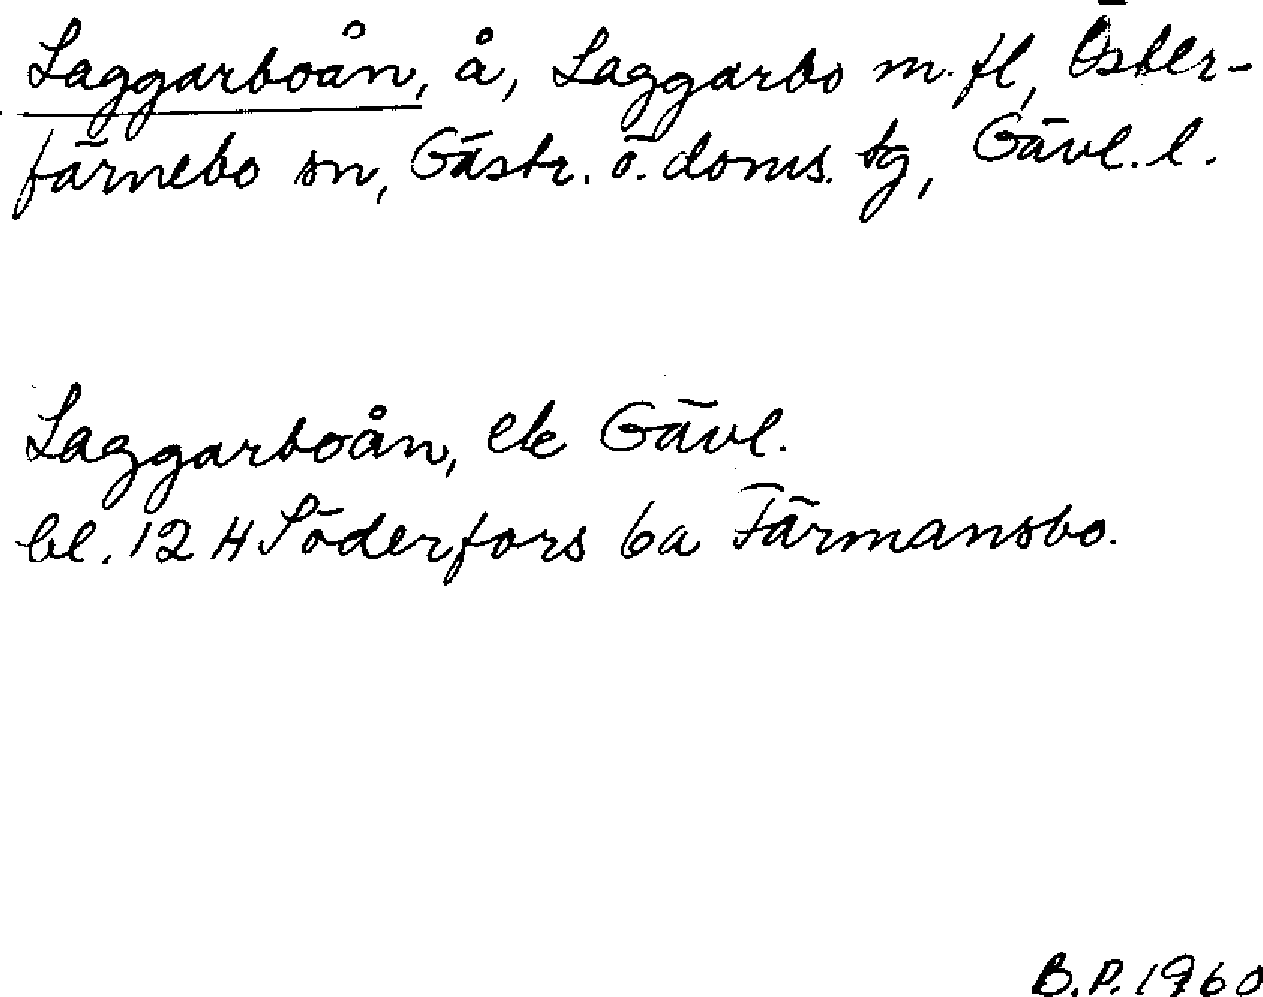 Laggarboån, å, Laggarbo m. fl, Öster-
färnebo sn, Gästr. ö. doms. tg, Gävl. l.
Laggarboån, ek Gävl.
bl. 12 H Söderfors 6a Färmansbo.
B.P. 1960